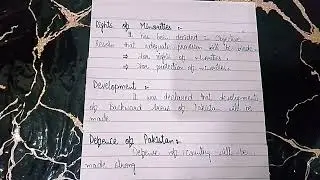 Rights of Minorities :-
It has been decided in Objective
Resolu that adequate provision will be made
⇒ for rights of minorities.
⇒ for protection of minorities.
Development :-
It was declared that developments
of backward areas of Pakistan will be
made.
Defence of Pakistan:-
Defense of country will be
made strong